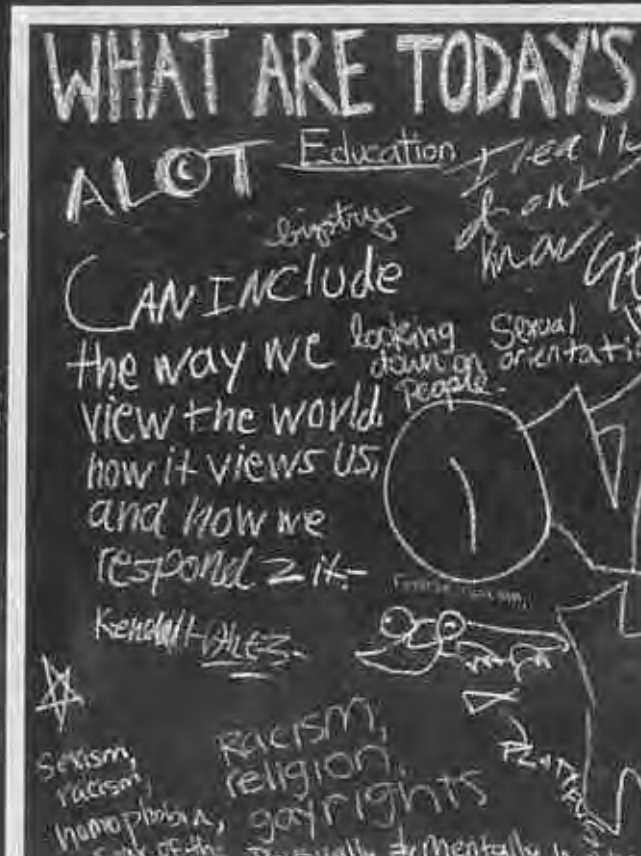 WHAT ARE TODAY'S
ALOT
Education
I really
don't
know
bigotry
CAN INCLUDE
the way we
view the world,
how it views us,
and how we
respond 2 it.
looking
down on
people.
Sexual
orientatio
Kendall
Sexism,
racism,
homophobia,
Racism,
religion,
gay rights
of the Physically & Mentally